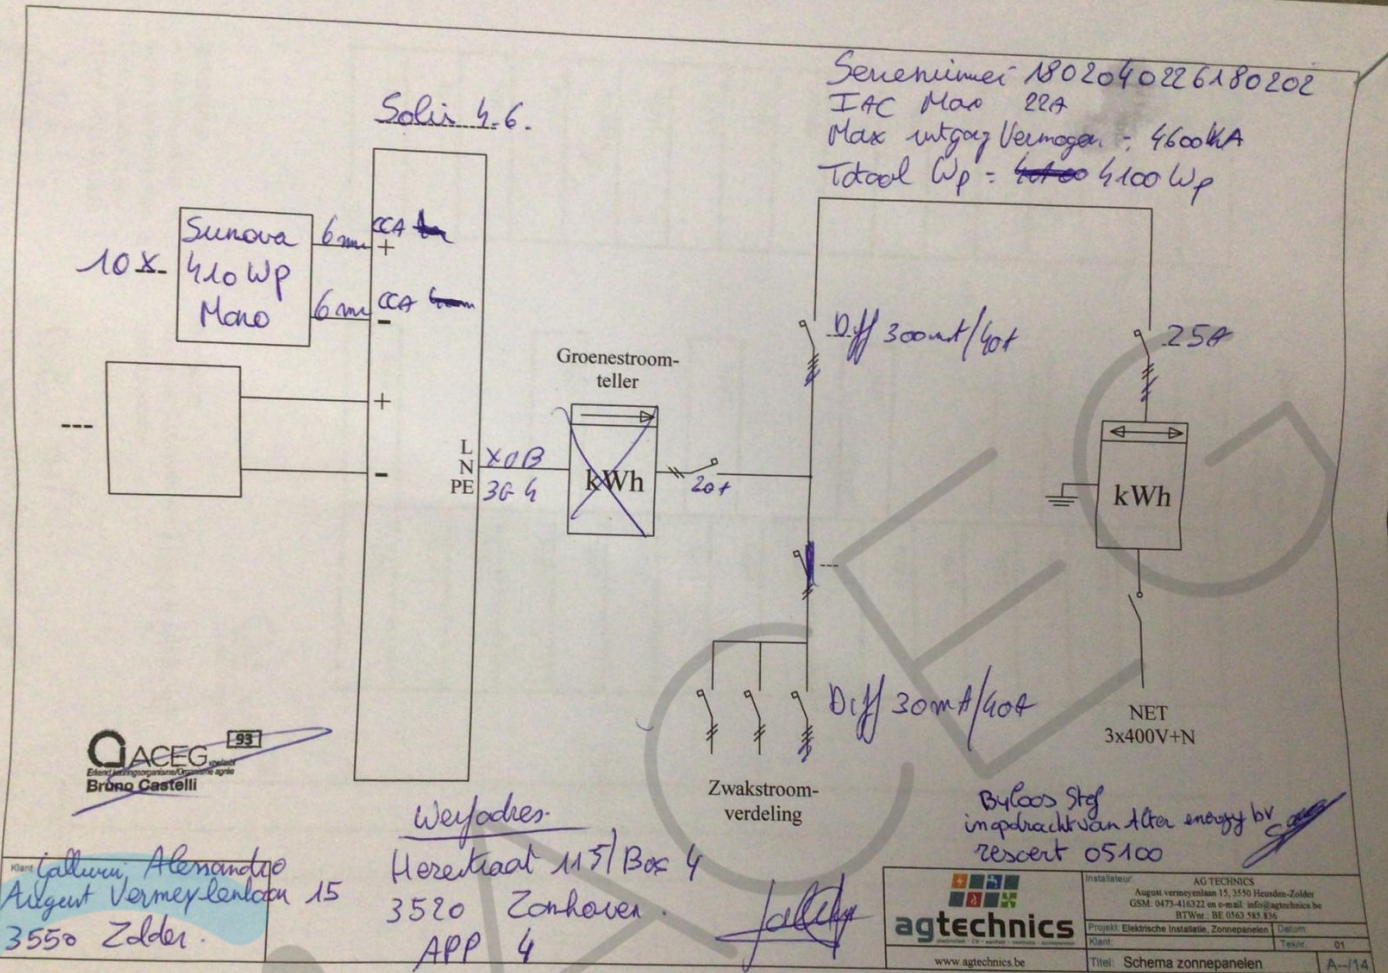 Serienummer 1802040226180202
IAC Max 22A
Max uitgang Vermogen = 4600kA
Totaal Wp = 4100 Wp
Solis 4.6.
10 x
Sunova
410 Wp
Mono
6mm
CCA
+
6mm
CCA
-
+
-
---
L
N
PE
XVB
3G4
Groenestroom-
teller
kWh
20A
Diff 300mA/40A
25A
kWh
---
Diff 30mA/40A
NET
3x400V+N
Zwakstroom-
verdeling
ACEG 93
Erkend keuringsorganisme/Organisme agréé
Bruno Castelli
Werfadres
Herestraat 115/Box 4
3520 Zonhoven.
APP 4
Byloos Stef
in opdracht van Alter energy bv
rescert 05100
Klant
Gallurii, Alessandro
August Vermeylenlaan 15
3550 Zolder.
agtechnics
www.agtechnics.be
Installateur:
AG TECHNICS
August vermeyenlaan 15, 3550 Heusden-Zolder
GSM: 0473-416322 en e-mail: info@agtechnics.be
BTWnr.: BE 0563.585.836
Projekt: Elektrische Installatie, Zonnepanelen
Datum:
Klant:
Teknr. 01
Titel: Schema zonnepanelen
A--/14
ACEG